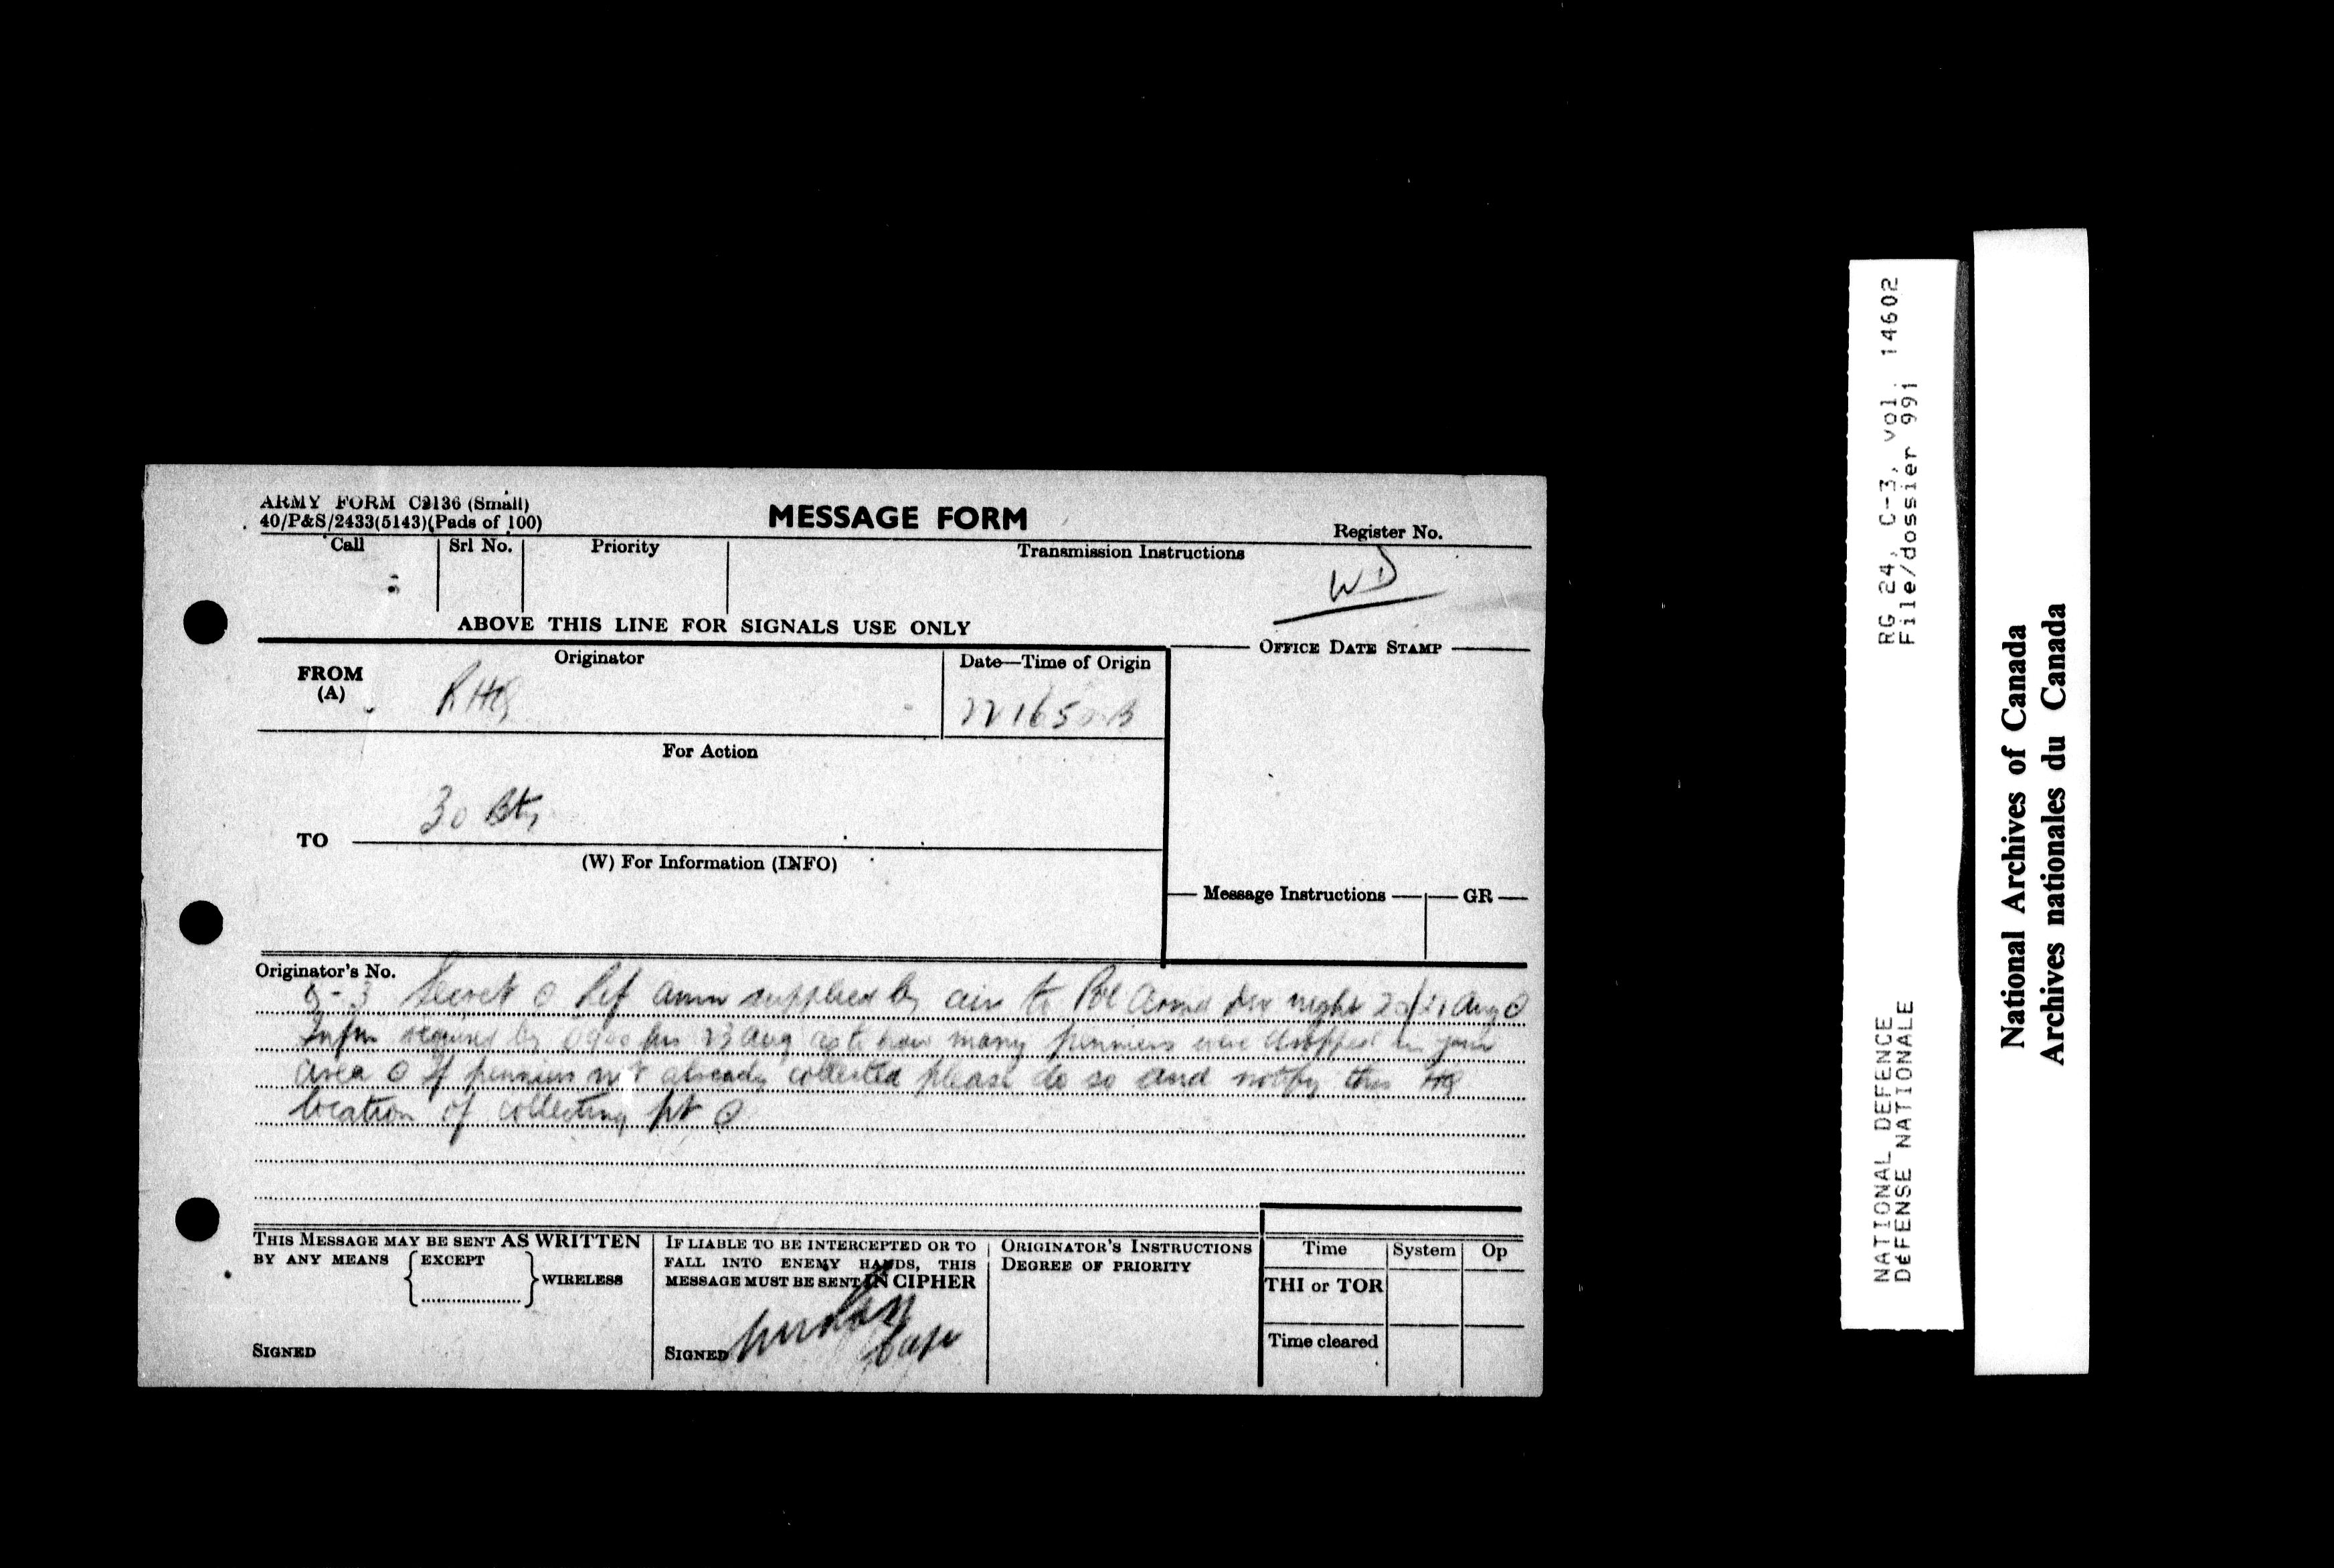 ARMY FORM C2136 (Small)
40/P&S/2433(5143)(Pads of 100)
MESSAGE FORM
Register No.
Call
Srl No.
Priority
Transmission Instructions
WD
ABOVE THIS LINE FOR SIGNALS USE ONLY
OFFICE DATE STAMP
FROM
(A)
Originator
RHQ
Date—Time of Origin
221650B
For Action
30 Bty
TO
(W) For Information (INFO)
Message Instructions
GR
Originator's No.
Q-3 Secret O Ref amn supplied by air to Pol Armd Div night 20/21 Aug O
Infm required by 0900 hrs 23 Aug as to how many panniers were dropped in your
area O If panniers not already collected please do so and notify this HQ
location of collecting pt O
THIS MESSAGE MAY BE SENT AS WRITTEN
BY ANY MEANS
EXCEPT
WIRELESS
SIGNED
IF LIABLE TO BE INTERCEPTED OR TO
FALL INTO ENEMY HANDS, THIS
MESSAGE MUST BE SENT IN CIPHER
SIGNED
Capt
ORIGINATOR'S INSTRUCTIONS
DEGREE OF PRIORITY
Time
System
Op
THI or TOR
Time cleared
NATIONAL DEFENCE
DÉFENSE NATIONALE
RG 24, C-3, vol. 14602
File/dossier 991
National Archives of Canada
Archives nationales du Canada